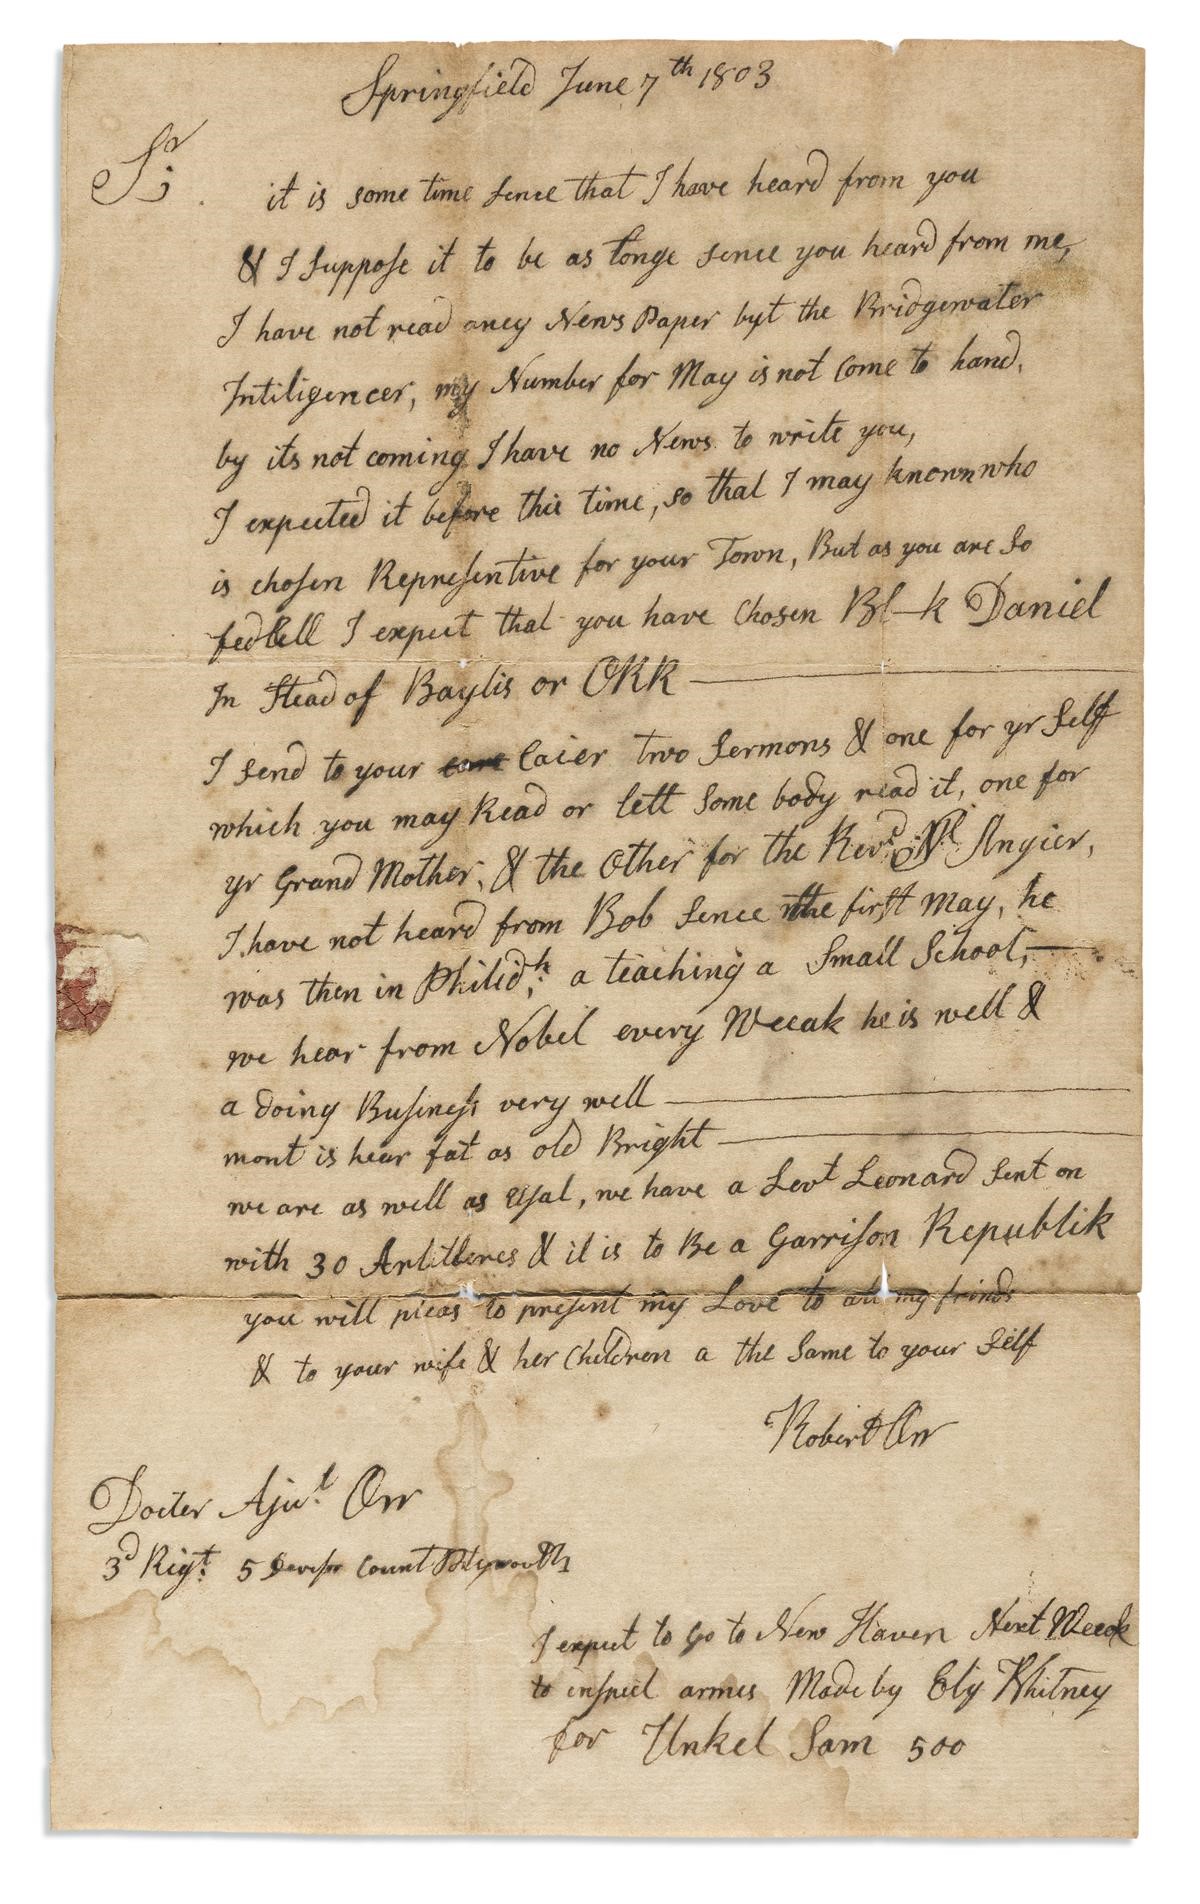 Springfield June 7th 1803
Sr;
it is some time sence that I have heard from you
& I Suppose it to be as longe sence you heard from me,
I have not read aney News Paper byt the Bridgewater
Intiligencer, my Number for May is not Come to hand,
by its not coming I have no News to write you,
I expected it before this time, so that I may known who
is chosen Represintive for your Town, But as you are So
I expect that you have Chosen Bl—k Daniel
In Stead of Baylis or ORR
I send to your Caier two Sermons & one for yr Self
which you may Read or lett Some body read it, one for
yr Grand Mother, & the Other for the Revd Mr Angier,
I have not heard from Bob Sence the first May, he
was then in Philedh: a teaching a Small School,—
we hear from Nobel every Weeak he is well &
a doing Business very well
mont is hear fat as old Bright
we are as well as Usal, we have a Levt Leonard Sent on
with 30 & it is to Be a Garrison Republik
you will pleas to present my Love to all my frinds
& to your wife & her Children a the Same to your Self
Robert Orr
Docter Ajut. Orr
3d Rigt: 5 Count
I expect to Go to New Haven Next Weeak
to inspect armes Made by Ely Whitney
for Unkel Sam 500